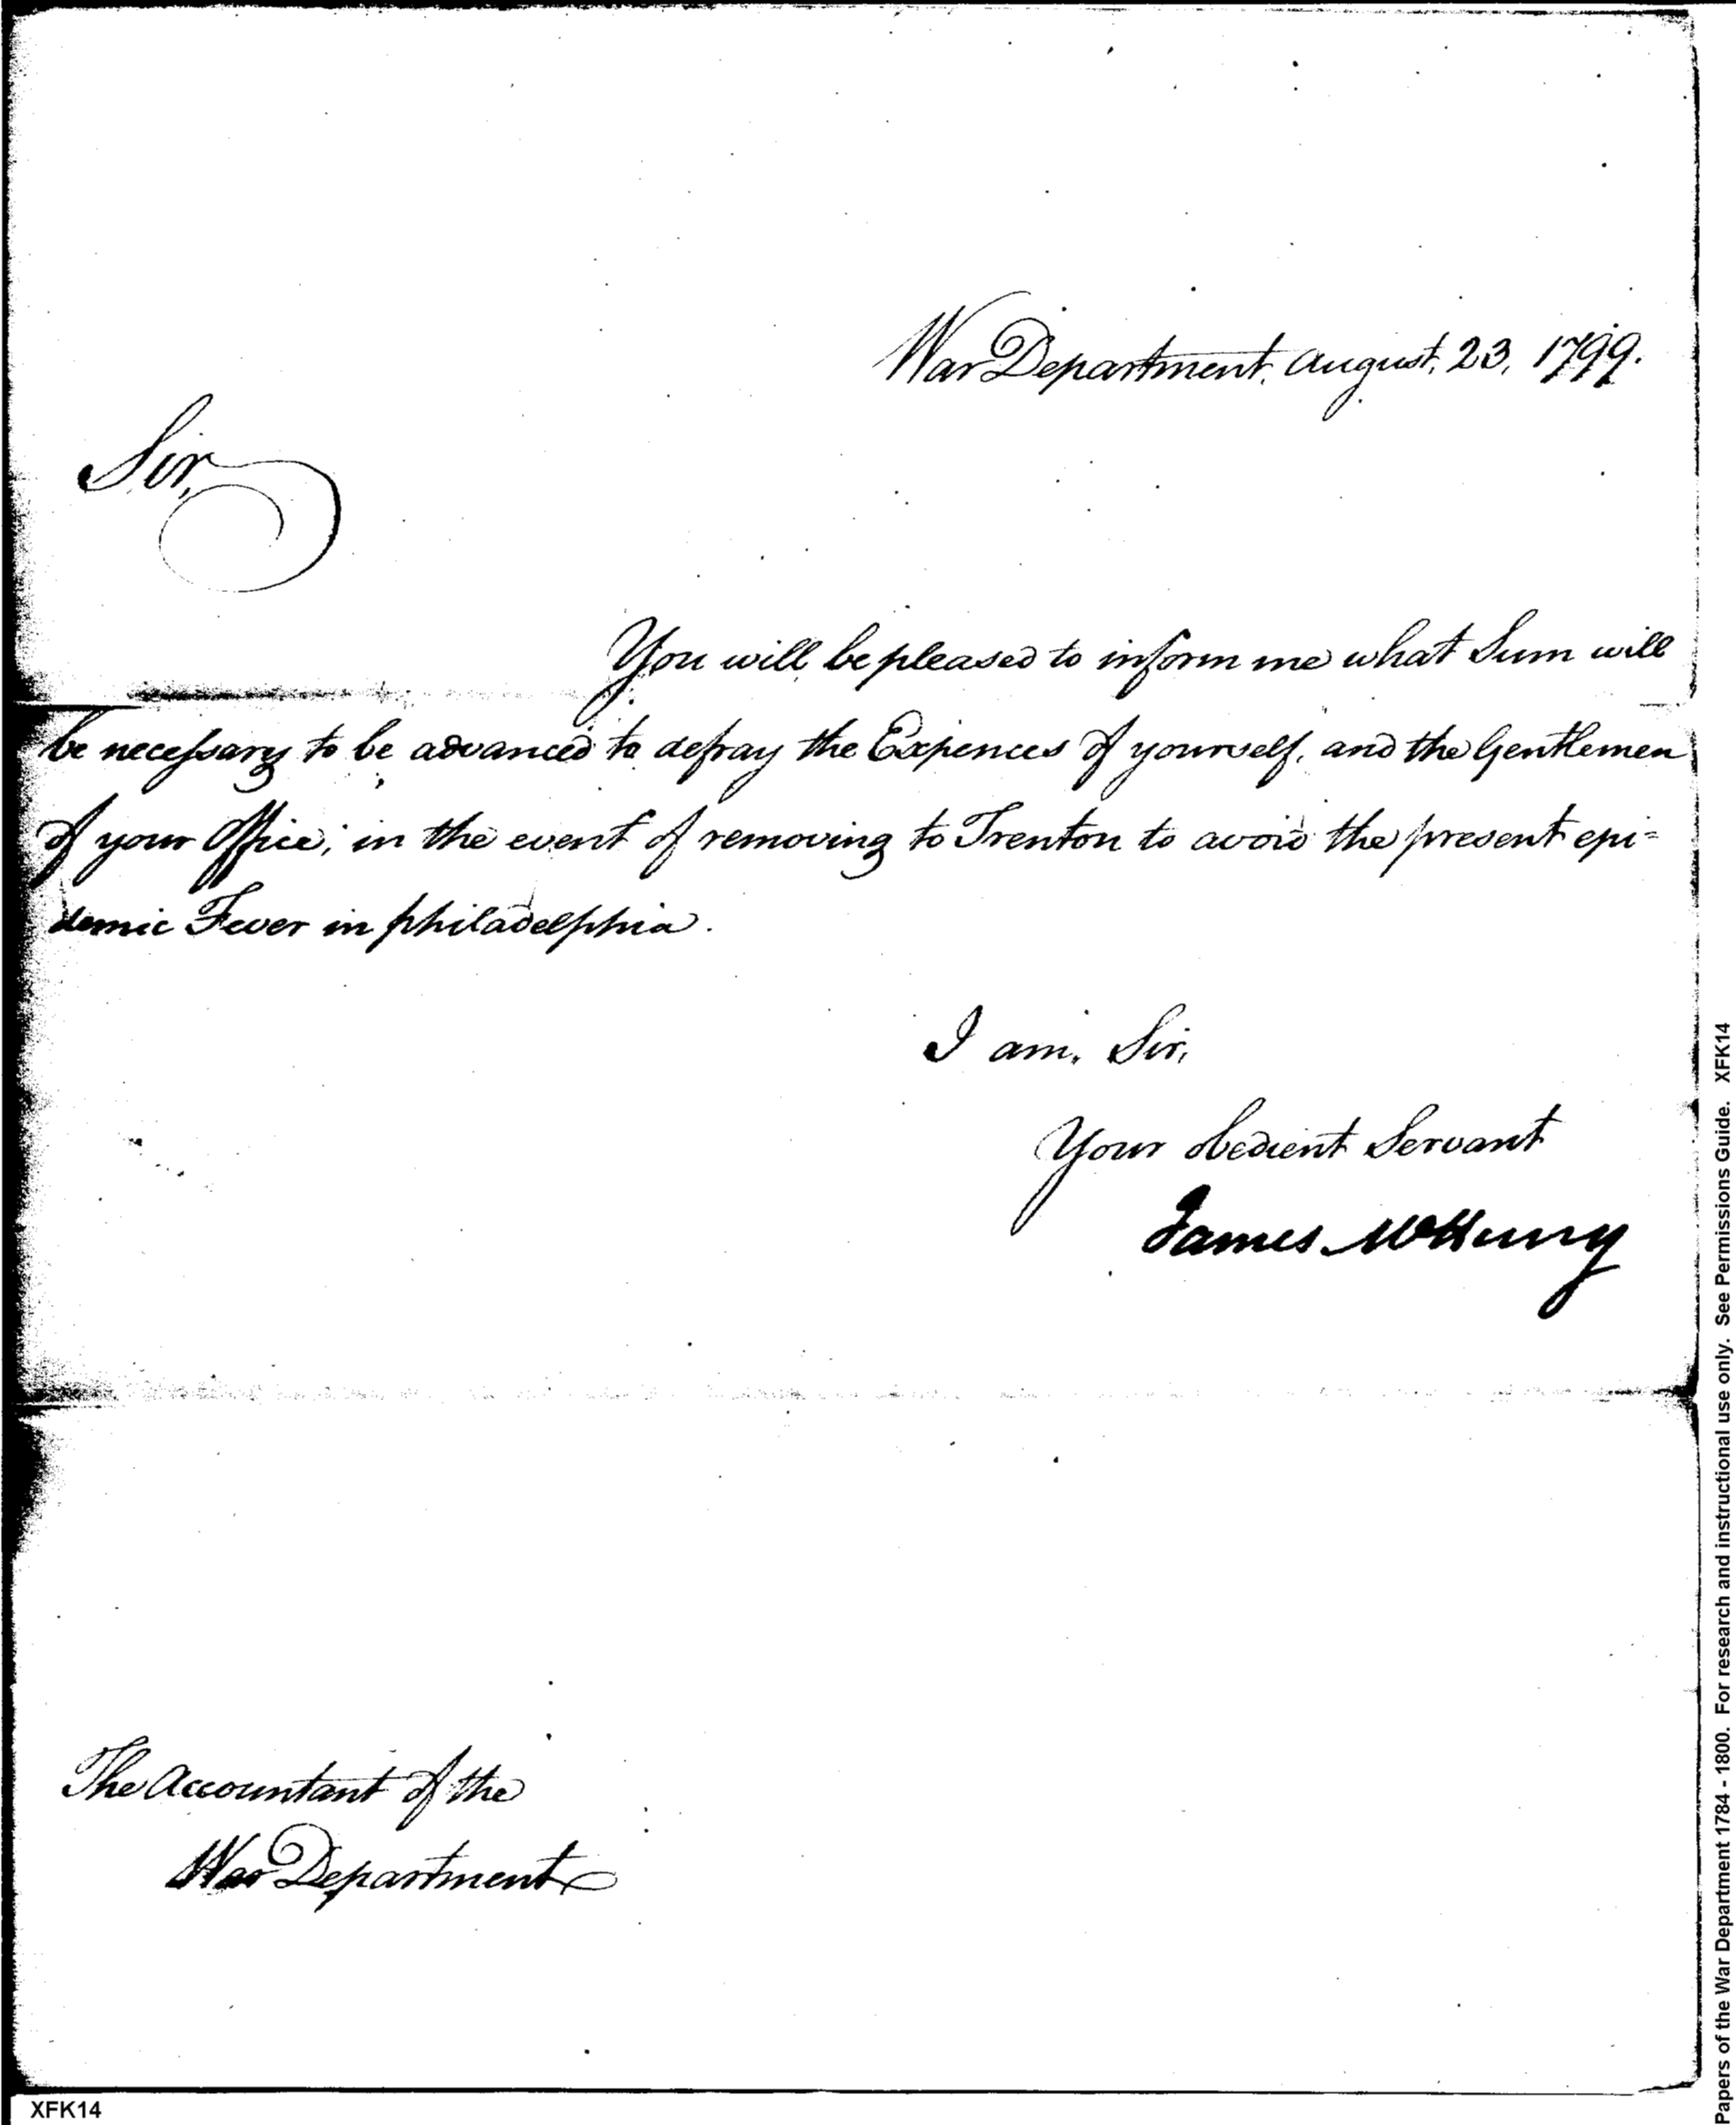 War Department, August, 23, 1799.
Sir,
You will be pleased to inform me what Sum will
be necessary to be advanced to defray the Expences of yourself, and the Gentlemen
of your Office; in the event of removing to Trenton to avoid the present epi=
demic Fever in philadelphia.
I am, Sir,
Your obedient Servant
James McHenry
The Accountant of the
War Department
XFK14
Papers of the War Department 1784 - 1800. For research and instructional use only. See Permissions Guide. XFK14